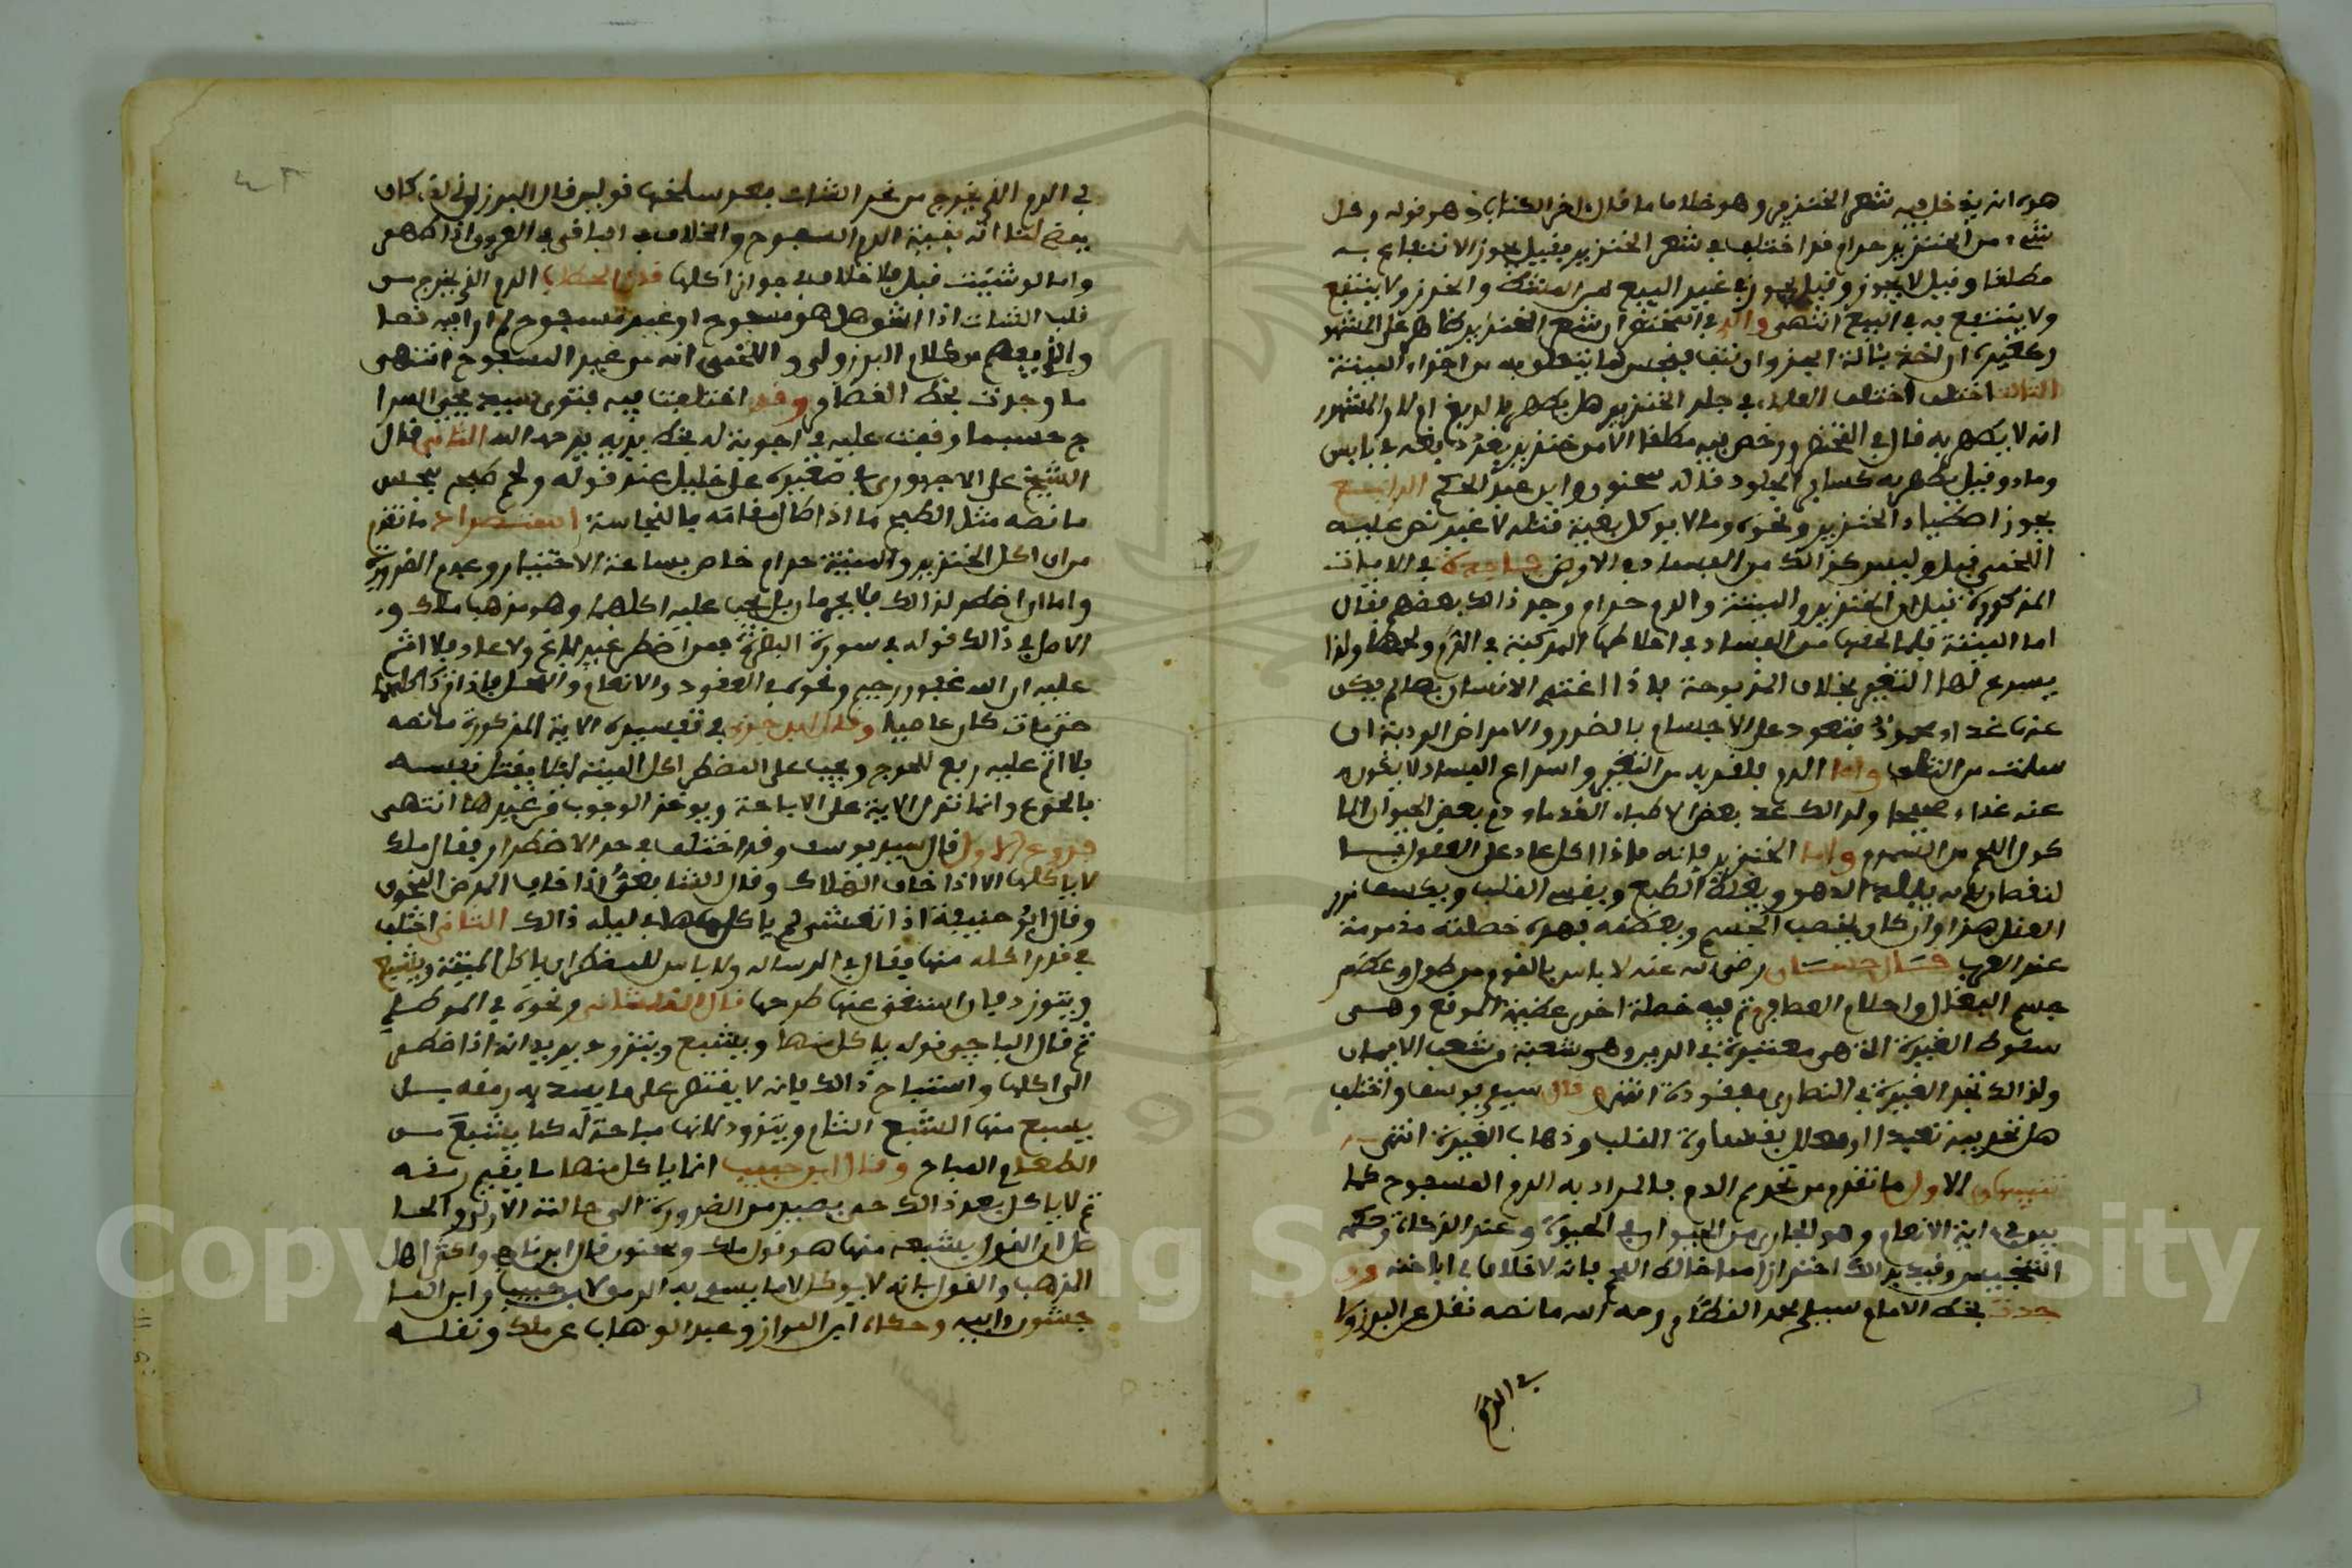 هو انه يدخل فيه شعر الخنزير وهو خلاف ما قال اخر الكتاب وهو قوله وكل
شيء من الخنزير حرام قد اختلف في شعر الخنزير فقيل يجوز الانتفاع به
مطلقا وقيل لا يجوز وقيل يجوز في غير البيع والخرز ولا ينتفع
ولا ينتفع به في البيع انتهى والذي في المختصر ان شعر الخنزير طاهر على المشهور
كغيره ان اخذ بئالة الجز وان نتف فنجس لما يتعلق به من اجزاء الميتة
الثالث اختلف العلماء في جلد الخنزير هل يطهر بالدبغ ام لا والمشهور
انه لا يطهر به قال في المختصر ورخص فيه مطلقا الا من خنزير بعد دبغه في يابس
وماء وقيل يطهر به كساير الجلود قاله سحنون وابن عبد الحكم الرابع
يجوز اصطياد الخنزير ونحوه وما لا يوكل بنية قتله لا غير نص عليه
اللخمي قيل وليس كذالك من الفساد في الارض في الايات
المذكورة قيل ان الخنزير والميتة والدم حرام وجد ذالك بعضهم فقال
اما الميتة فلما لحقها من الفساد في اخلاطها المركبة في الدم ولحمها ولذا
يسرع لها التغير بخلاف المذبوحة فاذا اغتذى الانسان بها لم يكن
عنها غذاء محمود فتعود على الاجسام بالضرر والامراض الردية ان
سلمت من التلف واما الدم فلقربه من التغير واسراع الفساد لا يكون
عنه غذاء صحيح ولذالك عد بعض الاطباء القدماء دم بعض الحيوان الما
كول اللحم من السموم واما الخنزير فانه اذا اكل عاد على العقول
الدهر ويغلظ الطبع ويقسي القلب ويكسف نور
العقل هذا وان كان يخصب الجسم ويعظمه فهذه خصلة مذمومة
عند العرب قال حسان رضي الله عنه لا باس بالقوم من طول ومن عظم
جسم البغال واحلام العصافير ثم فيه خصلة اخرى عظيمة الموقع وهي
سقوط الغيرة التي هي معتبرة في الدين وهي شعبة من شعب الايمان
ولذالك تجد الغيرة في النصارى مفقودة انتهى وقال سيدي يوسف واختلف
هل تحريمه تعبدا او معلل بقساوة القلب وذهاب الغيرة انتهى
تنبيهان الاول ما تقدم من تحريم الدم فالمراد به الدم المسفوح كما
في ءاية الانعام وهو الجاري من الحيوان في الحياة وعند الذكاة وحكمه
التنجيس وقيد بذالك احترازا مما خالط اللحم فانه لا خلاف في اباحته وو
جدت بخط الامام سيدي محمد القصار رحمه الله ما نصه نقل عن البرزولي
في الدم
في الدم الذي يخرج من نحر الشاة بعد سلخها قولين قال البرزلي كان
يقع لنا انه بقية الدم المسفوح والخلاف في الباقي في العروق اذا ظهر
واما لو شويت قبل فلا خلاف في جواز اكلها قال الحطاب الدم الذي يخرج من
قلب الشاة اذا انشق هل هو مسفوح او غير مسفوح لم ار فيه نصا
والذي يفهم من كلام البرزولي واللخمي انه من غير المسفوح انتهى
ما وجدت بخط القصار وقد اختلفت فيه فتوى سيدي يحيى السرا
ج حسبما وقفت عليه في اجوبة له بخط يديه يرحمه الله الثاني قال
الشيخ علي الاجهوري في صغيره على خليل عند قوله ولحم طبخ بنجس
ما نصه مثل الطبخ ما اذا طال مقامه بالنجاسة ما تقدم
من ان اكل الخنزير والميتة حرام خاص بساعة الاختيار وعدم الضرورة
واما ان اضطر لذالك فلا يحرمان بل يجب عليه اكلهما وهو مذهب ملك و
الاصل في ذالك قوله في سورة البقرة فمن اضطر غير باغ ولا عاد فلا اثم
عليه ان الله غفور رحيم ونحوه في العقود والانعام والنحل فاذا ترك اكلهما
حتى مات كان عاصيا وقال ابن جزي في تفسيره الاية المذكورة ما نصه
فلا اثم عليه رفع للحرج ويجب على المضطر اكل الميتة ليلا يقتل نفسه
بالجوع وانما تدل الاية على الاباحة ويوخذ الوجوب من غيرها انتهى
فروع الاول قال سيدي يوسف وقد اختلف في حد الاضطرار فقال ملك
لا ياكلها الا اذا خاف الهلاك وقال الشافعي اذا خاف المرض المخوف
وقال ابو حنيفة اذا تعشى لم ياكلها في ليله ذالك الثاني اختلف
في قدر اكله منها فقال في الرسالة ولا باس للمضطر ان ياكل الميتة ويشبع
ويتزود فان استغنى عنها طرحها قال القلشاني ونحوه في الموطا
ثم قال الباجي قوله ياكل منها ويشبع ويتزود يريد انه اذا اضطر
الى اكلها واستباح ذالك فانه لا يقتصر على ما يسد به رمقه بل
يشبع منها الشبع التام ويتزود لانها مباحة له كما يشبع من
الطعام المباح وقال ابن حبيب انما ياكل منها ما يقيم رمقه
ثم لا ياكل بعد ذالك حتى يصير من الضرورة الى حالته الاولى والحا
صل ان القول بشبعه منها هو قول ملك وسحنون قال ابن ناجي واكثر اهل
المذهب والقول بانه لا يوكل الا ما يسد به الرمق لابن حبيب وابن الما
جشون وابيه وحكاه ابن المواز وعبد الوهاب عن ملك ونقله